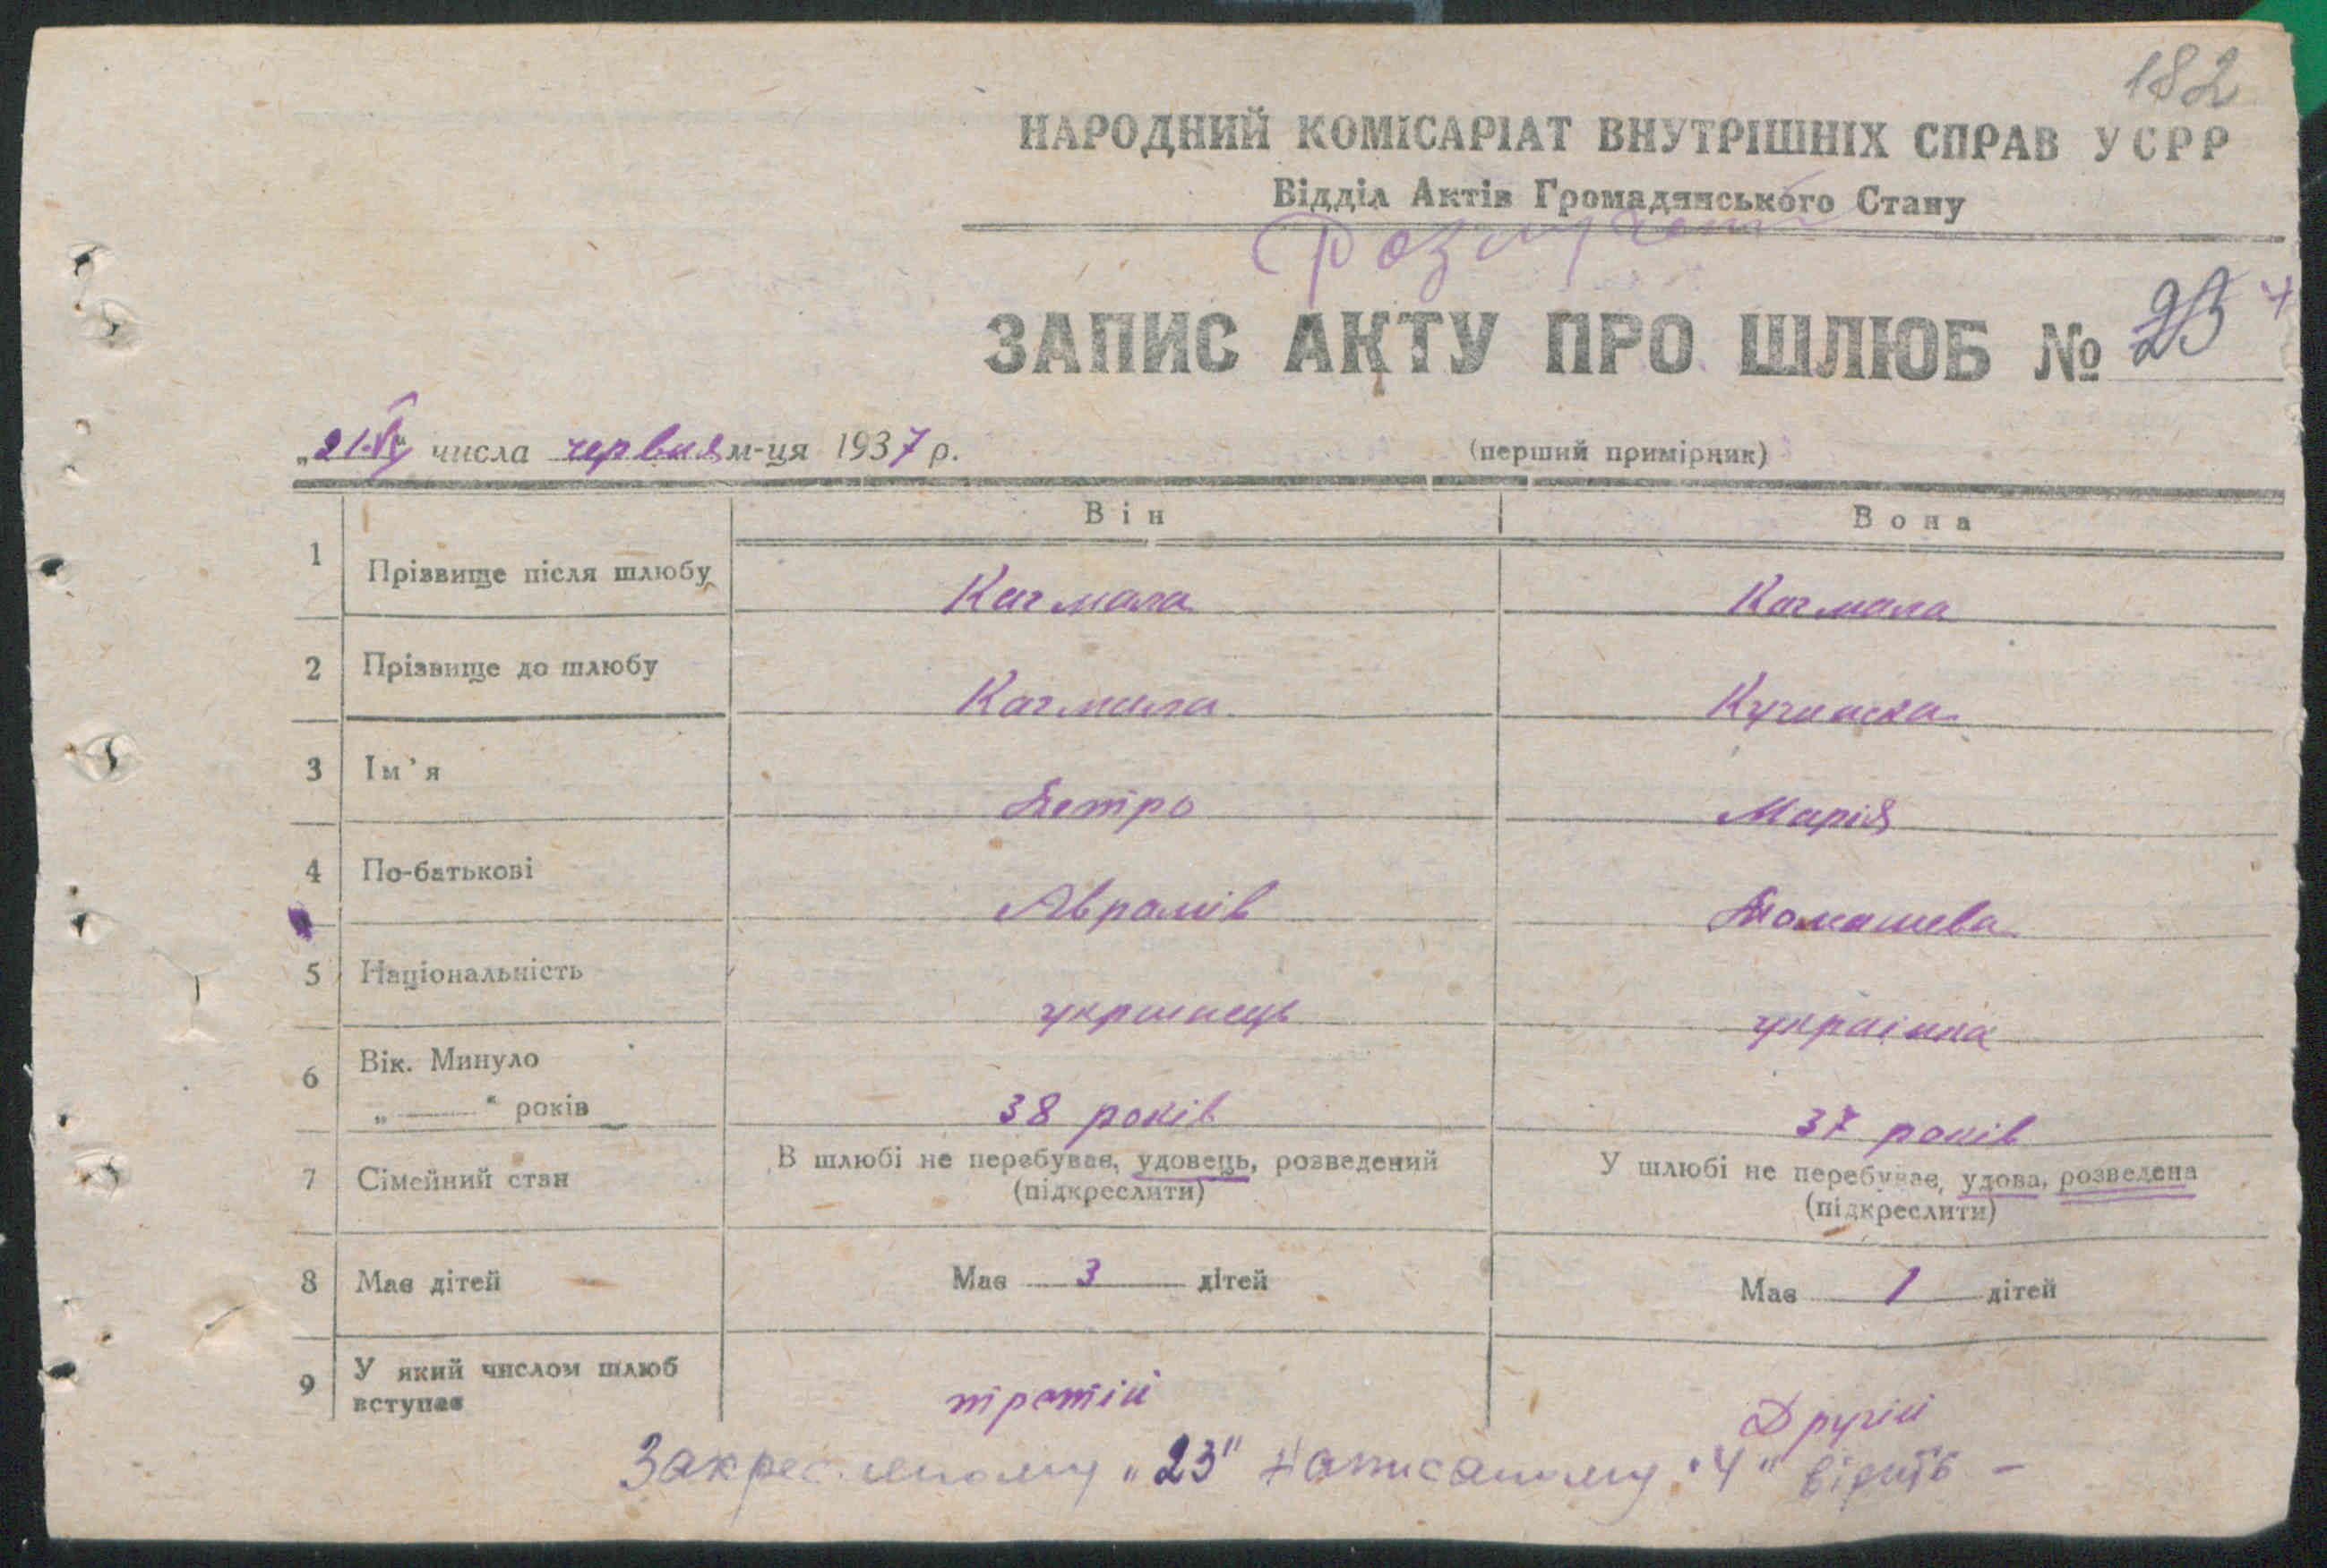 182
НАРОДНИЙ КОМІСАРІАТ ВНУТРІШНІХ СПРАВ УСРР
Відділ Актів Громадянського Стану
ЗАПИС АКТУ ПРО ШЛЮБ № 23 4
„21-VI“ числа червня м-ця 1937 р.
(перший примірник)
Він Вона
1 Прізвище після шлюбу Качмала Качмала
2 Прізвище до шлюбу Качмала Кучинска
3 Ім'я Петро Марія
4 По-батькові Аврамів Томашева
5 Національність украинець украінка
6 Вік. Минуло
„ “ років 38 років 37 років
7 Сімейний стан В шлюбі не перебуває, удовець, розведений У шлюбі не перебуває, удова, розведена
(підкреслити) (підкреслити)
8 Має дітей Має 3 дітей Має 1 дітей
9 У який числом шлюб
вступає третій Другій
Закресленому „23" написаному "4" вірить –